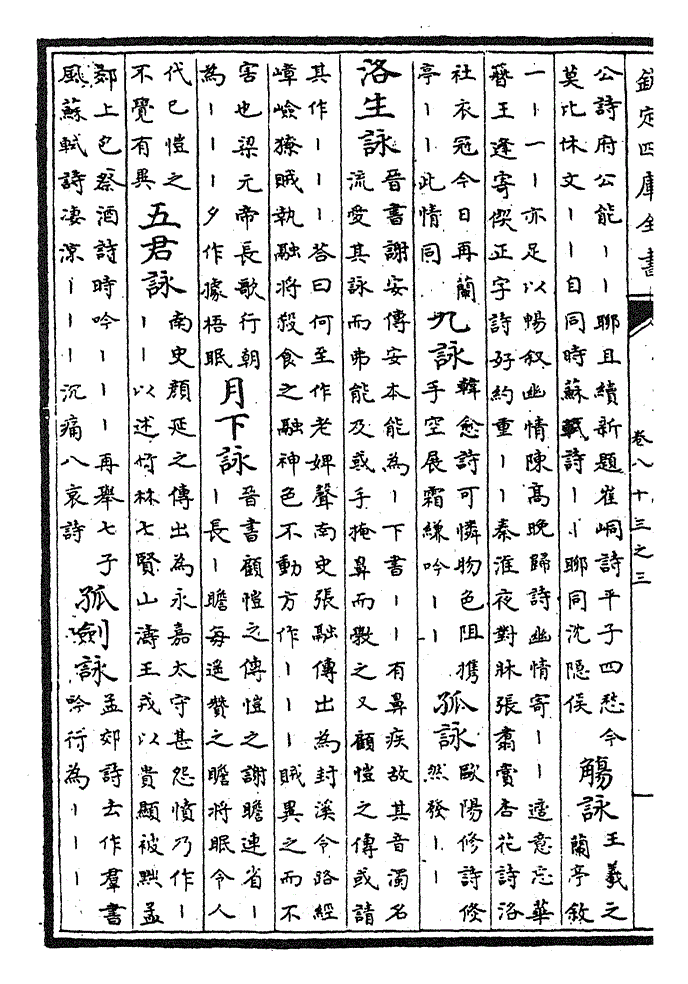 欽定四庫全書
卷八十三之三
公詩府公能丨丨聊且續新題崔峒詩平子四愁今
莫比休文丨丨自同時蘇軾詩丨丨聊同沈隱侯
觴詠
王羲之
蘭亭敘
一丨一丨亦足以暢叙幽情陳高晚歸詩幽情寄丨丨遠意忘華
簪王逢寄偰正字詩好約重丨丨秦淮夜對牀張肅賣杏花詩洛
社衣冠今日再蘭
亭丨丨此情同
九詠
韓愈詩可憐物色阻携
手空展霜縑吟丨丨
孤詠
歐陽修詩倐
然發丨丨
洛生詠
晉書謝安傳安本能為丨下書丨丨有鼻疾故其音濁名
流愛其詠而弗能及或手掩鼻而斆之又顧愷之傳或請
其作丨丨丨答曰何至作老婢聲南史張融傳出為封溪令路經
嶂嶮獠賊執融將殺食之融神色不動方作丨丨丨賊異之而不
害也梁元帝長歌行朝
為丨丨丨夕作據梧眠
月下詠
晉書顧愷之傳愷之謝瞻連省丨
丨長丨瞻每遥贊之瞻將眠令人
代已愷之
不覺有異
五君詠
南史顔延之傳出為永嘉太守甚怨憤乃作丨
丨丨以述竹林七賢山濤王戎以貴顯被黜孟
郡上邑祭酒詩時吟丨丨丨再舉七子
風蘇軾詩凄涼丨丨丨沉痛八哀詩
孤劍詠
孟郊詩去作羣書
吟行為丨丨丨